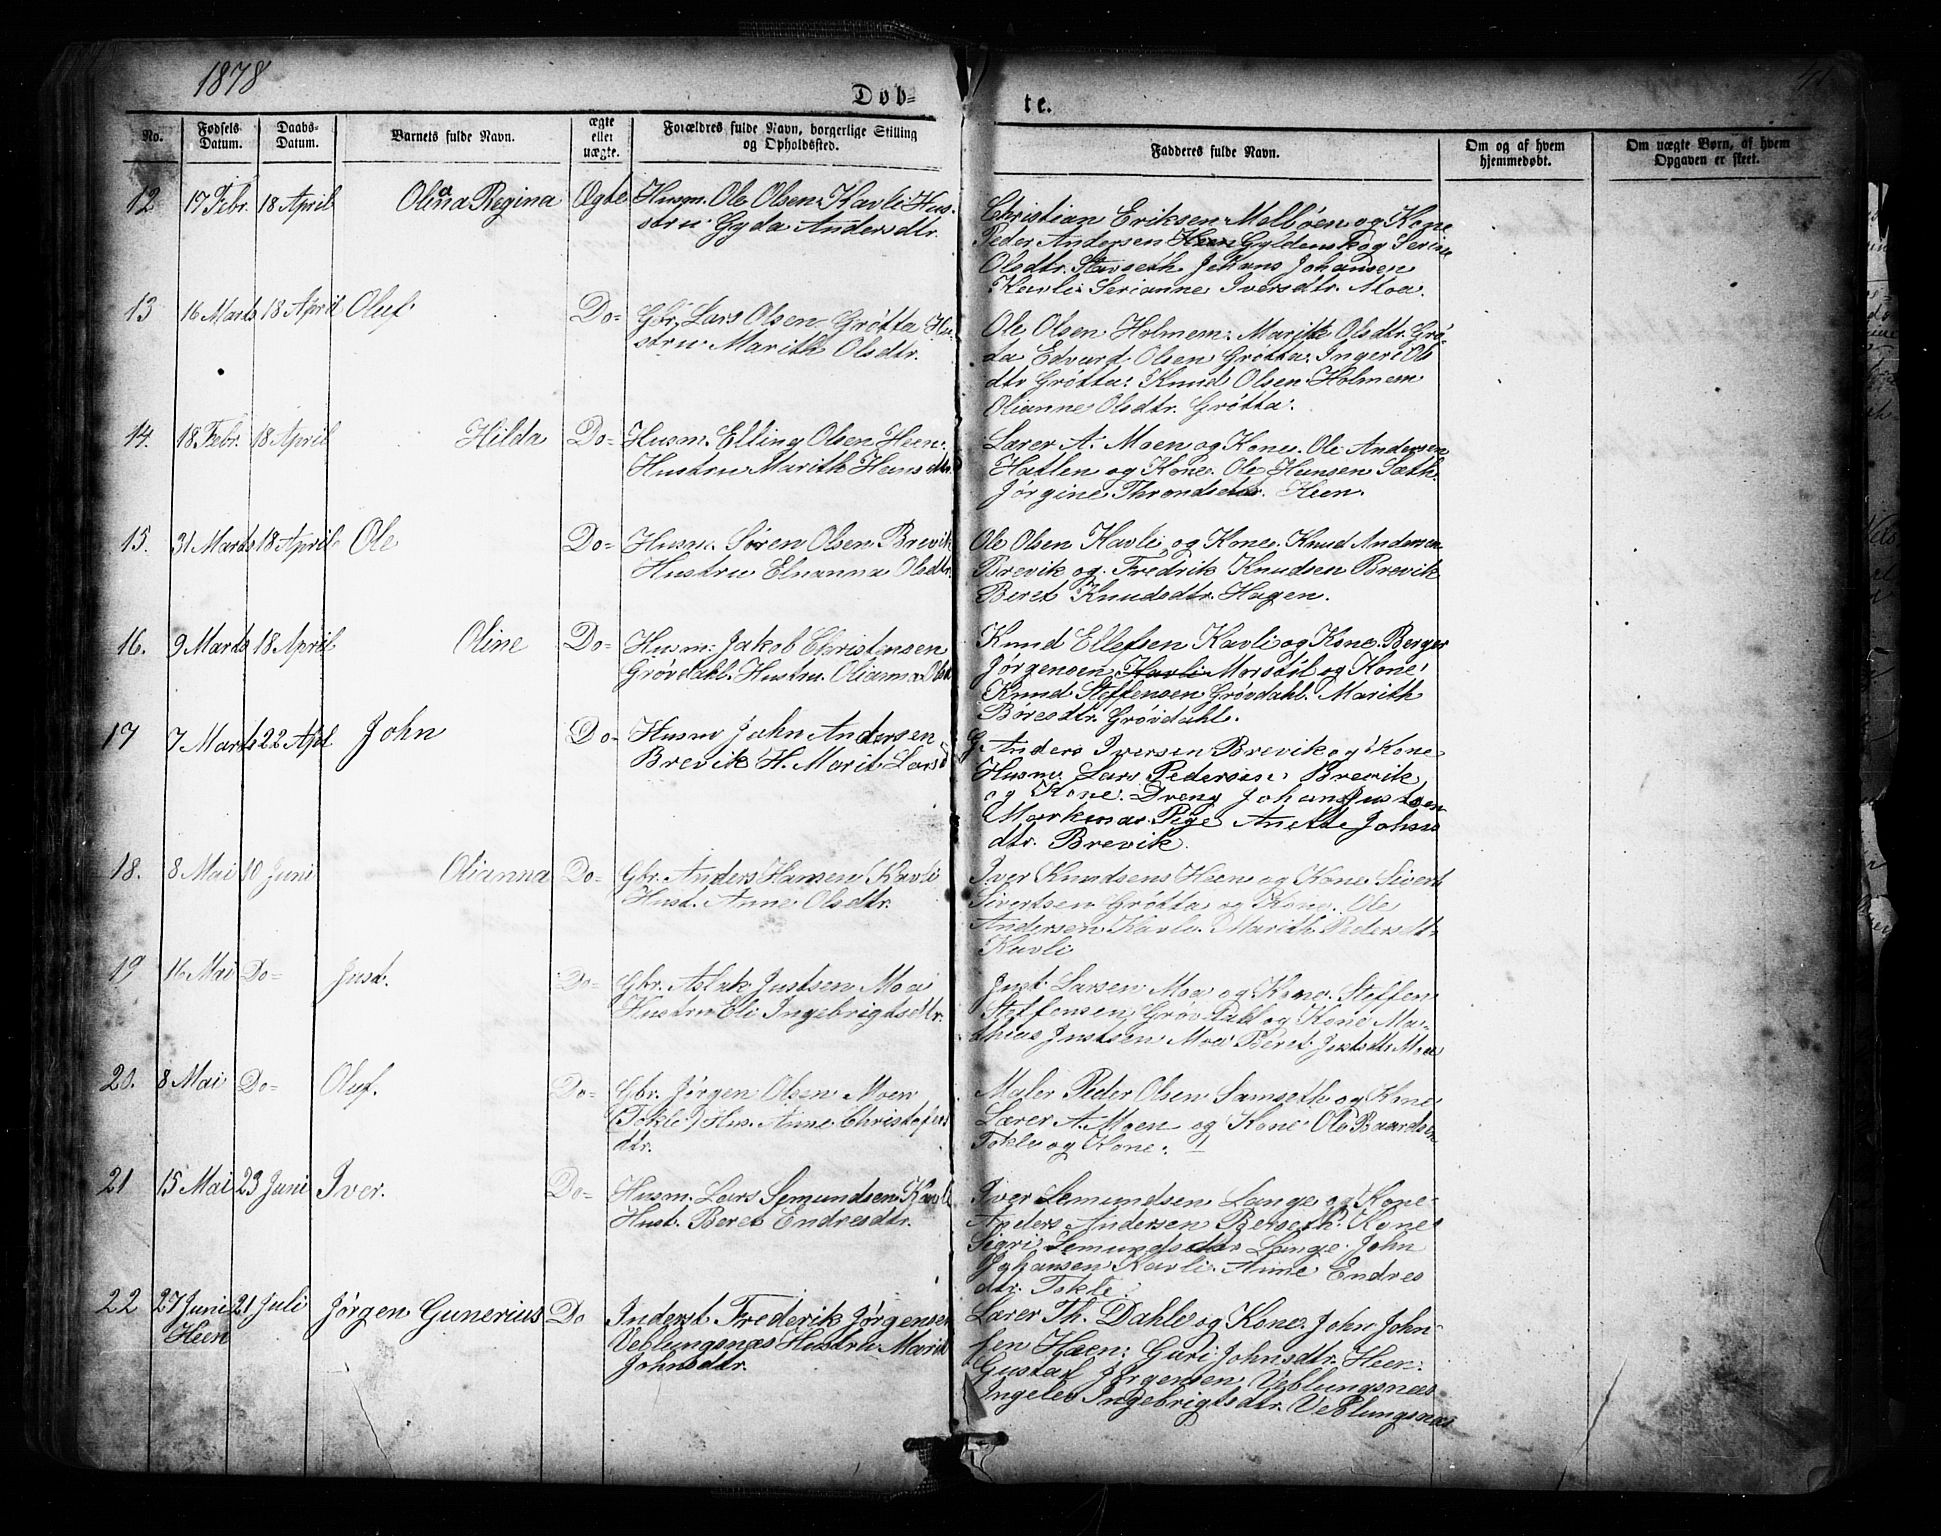 1878
Døb-
te.
No.
Fødsels Datum.
Daabs-Datum.
Barnets fulde Navn.
ægte eller uægte.
Forældres fulde Navn, borgerlige Stilling og Opholdssted.
Fadderes fulde Navn.
Om og af hvem hjemmedøbt.
Om uægte Børn, af hvem Opgaven er skeet.
12 17 Febr. 18 April Olina Regina Ægte Husm. Ole Olsen Kavli Hus-
stru Gyda Andersdtr.
Christian Eriksen Melbøen og Kone
Peder Andersen Heen Gyldenskog Serine
Olsdtr. Stavseth Johans Johansen
Kavli Serianne Iversdtr. Moa.
13 16 Marts 18 April Oluf Do- Gbr. Lars Olsen Grøtta Hu-
stru Marith Olsdtr.
Ole Olsen Holmem: Marith Olsdtr. Grø-
da Edvard Olsen Grøtta: Ingeri Ols
dtr Grøtta: Knud Olsen Holmem
Olianne Olsdtr. Grøtta.
14. 18 Febr. 18 April Hilda Do- Husm. Elling Olsen Heen:
Hustru Marith Hansdtr
Lærer A. Moen og Kone. Ole Andersen
Hatlen og Kone. Ole Hansen Sæth.
Jørgine Throndsdtr. Heen.
15. 31 Marts 18 April Ole Do- Husm. Søren Olsen Brevik
Hustru Elnanna Olsdtr.
Ole Olsen Kavli og Kone. Knud Andersen
Brevik og Fredrik Knudsen Brevik
Beret Knudsdtr. Hagen.
16. 9 Marts 18 April Oline Do- Husm: Jakob Christensen
Grøvdahl. Hustru. Olianna Olsd
Knud Ellefsen Kavli og Kone. Berger
Jørgensen Kavli Morstøl og Kone
Knud Steffensen Grøvdahl. Marith
Børesdtr. Grøvdahl.
17 7 Marts 22 Apl John Do- Husm John Andersen
Brevik H. Marit Larsd
G Anders Iversen Brevik og Kone
Husm. Lars Pedersen Brevik
og Kone. Dreng Johan Justsen
Morkenas Pige Anette Johns
dtr. Brevik.
18. 8 Mai 10 Juni Olianna Do- Gbr. Anders Hansen Kavli
Hust. Anne Olsdtr.
Iver Knudsens Heen og Kone Sivert
Sivertsen Grøtta og Kone. Ole
Andersen Kavli. Marith Pedersdtr
Kavli
19 16 Mai Do- Just. Do- Gbr. Aslak Justsen Moa
Hustru Eli Ingebrigtsdtr.
Just Larsen Moa og Kone. Steffen
Steffensen Grøvdahl og Kone Ma-
thias Justsen Moa Beret Justsdtr Moa
20. 8 Mai Do- Oluf. Do- Gbr. Jørgen Olsen Moen
(Tokle) Hus. Anne Christofers
dtr.
Maler Peder Olsen Samseth og Kone
Lærer A. Moen og Kone Ole Baardsen
Tokle og Kone.
21 15 Mai 23 Juni Iver. Do- Husm. Lars Semundsen Kavli
Hust. Beret Endresdtr.
Iver Semundsen Lange og Kone
Anders Andersen Berseth. Kone
Sigri Semundsdtr Lange. John
Johansen Kavli. Anne Endres
dtr. Tokle.
22 27 Juni 21 Juli Jørgen Gunerius Do Inderst Frederik Jørgensen
Heen Veblungsnæs Hustru Marit
Johnsdtr.
Lærer Th. Dahle og Kone. John John-
sen Hæen: Guri Johnsdtr. Heen:
Gustaf Jørgensen Veblungsnæs
Ingelev Ingebrigtsdtr. Veblungsnæs